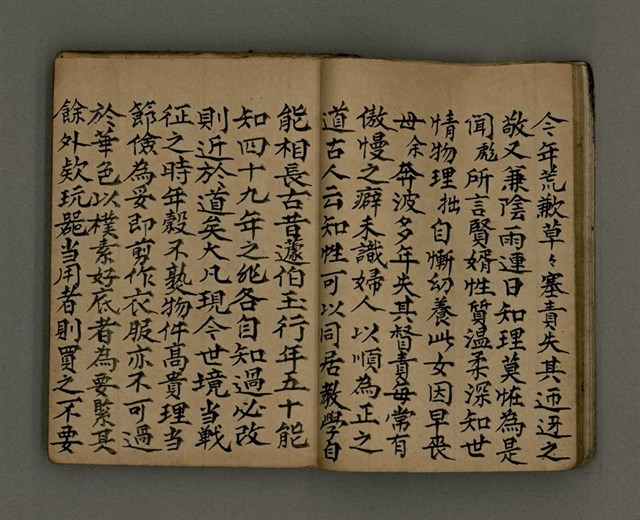 今年荒歉草々塞責失其迊迓之
敬又兼陰雨連日知理莫恠為是
闻彪所言賢婿性質溫柔深知世
情物理拙自慚幼養此女因早丧
母余奔波多年失其督責每常有
傲慢之癖未識婦人以順為正之
道古人云知性可以同居教學自
能相長古昔蘧伯玉行年五十能
知四十九年之非各自知過必改
則近於道矣大凡現今世境当戦
征之時年穀不熟物件高貴理当
節儉為妥即剪作衣服亦不可過
於華色以樸素好底者為要緊其
餘外欵玩噐当用者則買之不要